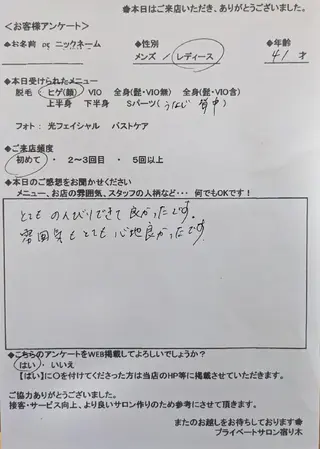 ◆本日はご来店いただき、ありがとうございました。
＜お客様アンケート＞
◆お名前 or ニックネーム ◆性別 ◆年齢
メンズ ／ レディース 41 才
◆本日受けられたメニュー
脱毛 ヒゲ(顔) VIO 全身(髭・VIO無) 全身(髭・VIO含)
上半身 下半身 Sパーツ( うなじ 背中 )
フォト： 光フェイシャル バストケア
◆ご来店頻度
初めて ・ 2～3回目 ・ 5回以上
◆本日のご感想をお聞かせください
メニュー、お店の雰囲気、スタッフの人柄など・・・ 何でもOKです！
とても のんびりできて 良かったです。
雰囲気も とても 心地良かったです。
◆こちらのアンケートをWEB掲載してよろしいでしょうか？
はい ・ いいえ
【はい】に○を付けてくださった方は当店のHP等に掲載させていただきます。
ご協力ありがとうございました。
接客・サービス向上、より良いサロン作りのため参考にさせて頂きます。
またのお越しをお待ちしております◆
プライベートサロン宿り木